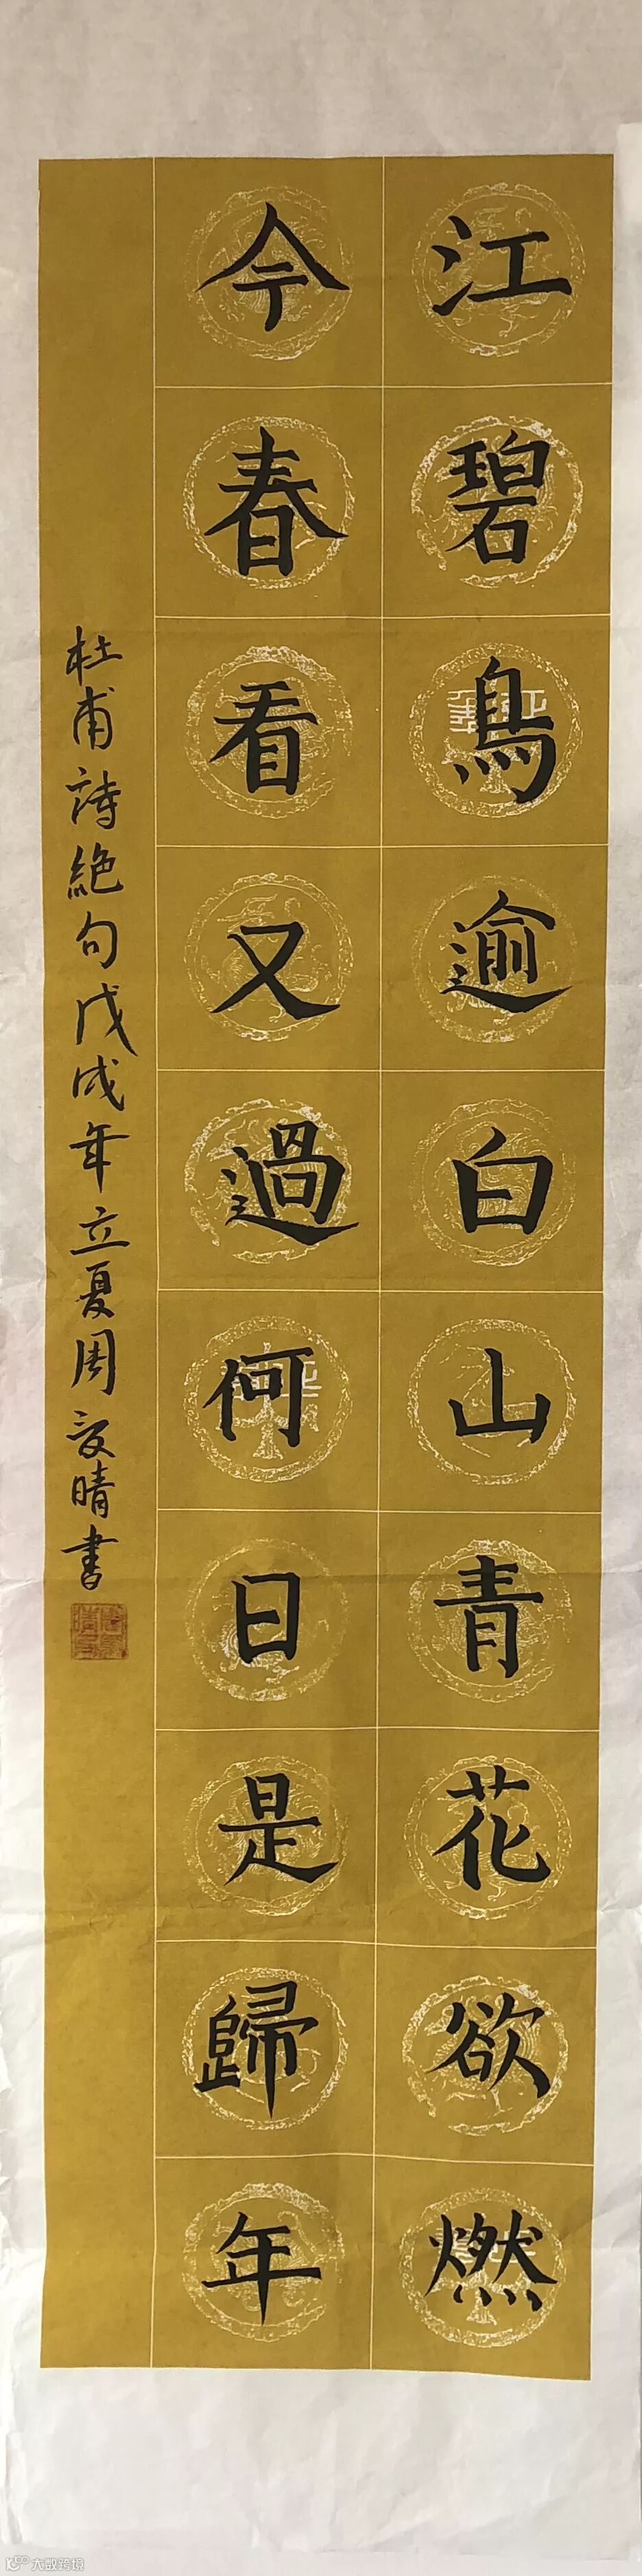 江碧鳥逾白山青花欲燃
今春看又過何日是歸年
杜甫詩絕句戊戌年立夏周愛晴書
大数跨境